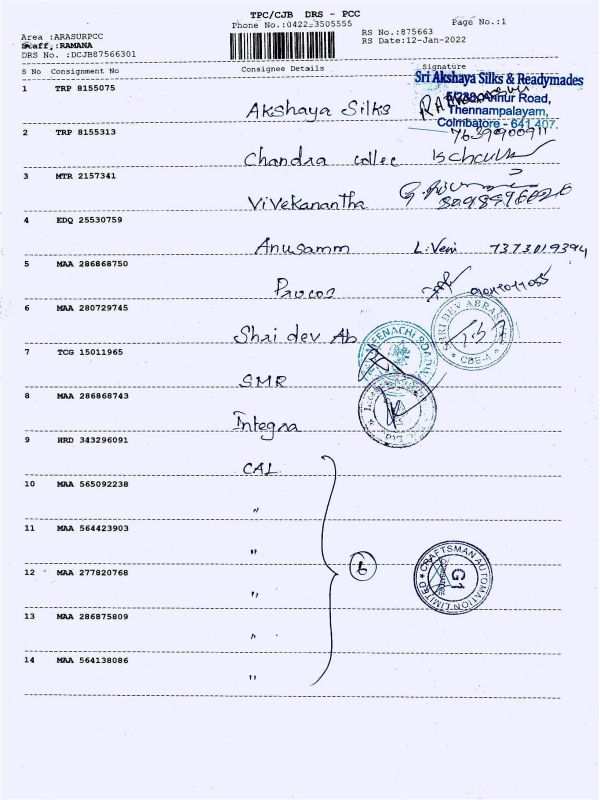 TPC/CJB DRS - PCC
Phone No.:0422-3505555
Page No.:1
Area :ARASURPCC
RS No.:875663
Staff :RAMANA
RS Date:12-Jan-2022
DRS No. :DCJB87566301
S No Consignment No Consignee Details Signature
Sri Akshaya Silks & Readymades
1 TRP 8155075
Annur Road,
Thennampalayam,
Akshaya Silks
Coimbatore - 641 407.
2 TRP 8155313
7639900911
Chandra collec
3 MTR 2157341
Vivekanantha
4 EDQ 25530759
Anusamm L.Veni 7373019394
5 MAA 286868750
6 MAA 280729745
Shri dev Ab
SHRI DEV ABRAS
CBE-A
7 TCG 15011965
SMR
8 MAA 286868743
Integra
9 HRD 343296091
CAL
10 MAA 565092238
"
11 MAA 564423903
"
12 MAA 277820768
"
CRAFTSMAN AUTOMATION LIMITED
G1
13 MAA 286875809
"
14 MAA 564138086
"